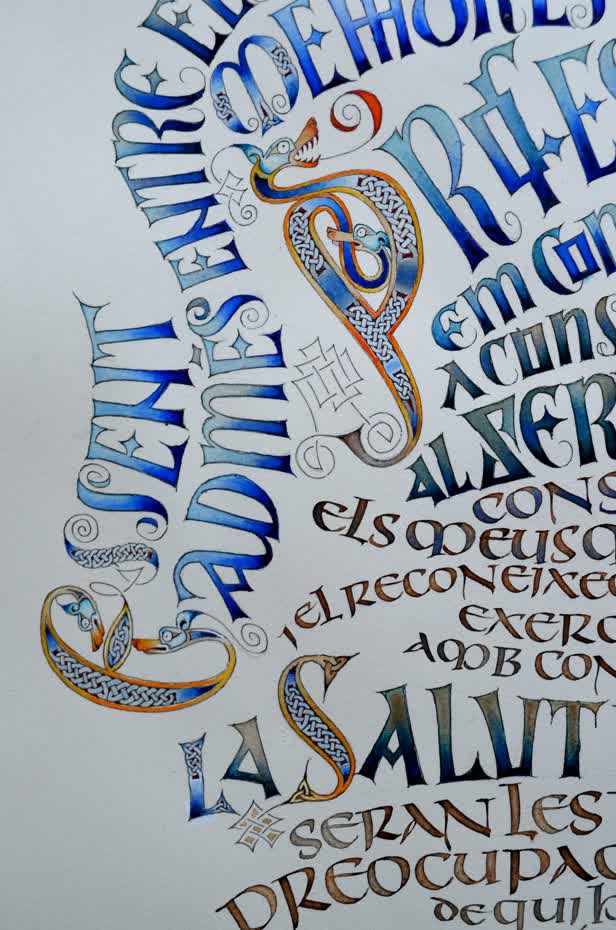 ESSENT
ADMÈS ENTRE EL
PROFES
EM CON
A CONS
AL SER
CONS
ELS MEUS M
I EL RECONEIXE
EXERC
AMB CON
LA SALUT
SERAN LES
PREOCUPAC
DE QUI